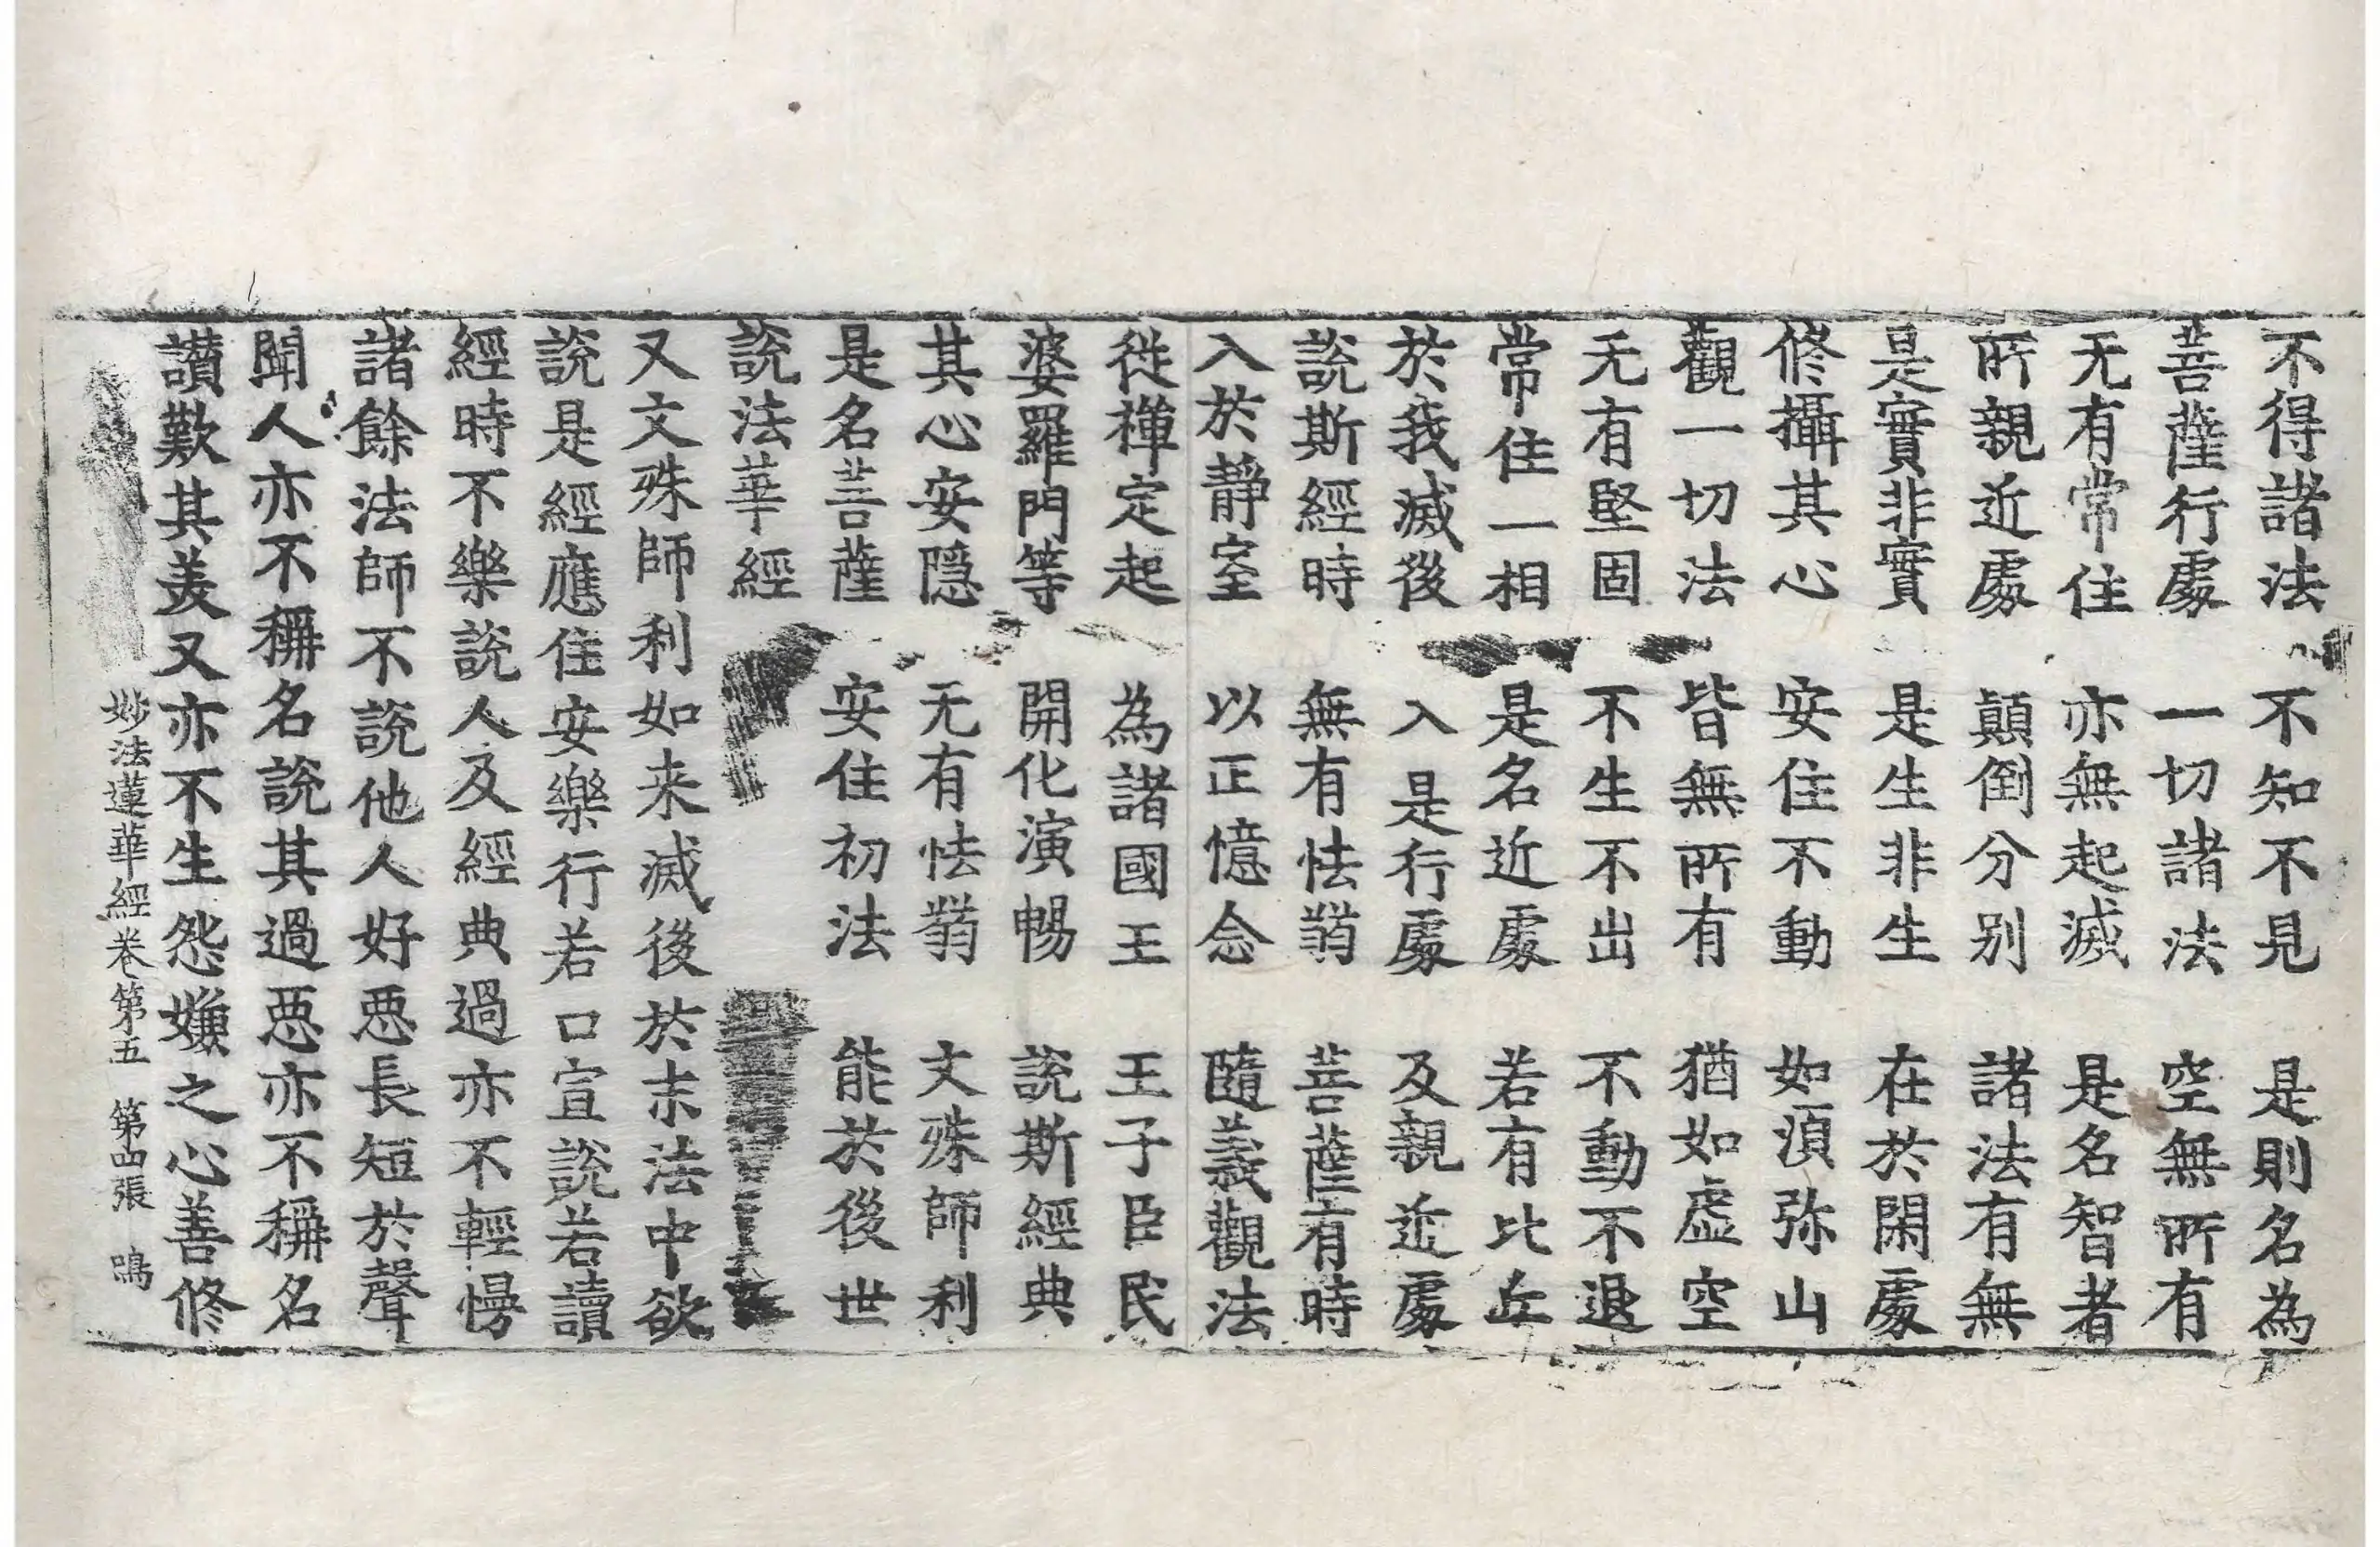 不得諸法 不知不見 是則名為
菩薩行處 一切諸法 空無所有
无有常住 亦無起滅 是名智者
所親近處 顛倒分別 諸法有無
是實非實 是生非生 在於閑處
修攝其心 安住不動 如湏弥山
觀一切法 皆無所有 猶如虛空
无有堅固 不生不出 不動不退
常住一相 是名近處 若有比丘
於我滅後 入是行處 及親近處
說斯經時 無有怯弱 菩薩有時
入於靜室 以正憶念 隨義觀法
從禪定起 為諸國王 王子臣民
婆羅門等 開化演暢 說斯經典
其心安隱 无有怯弱 文殊師利
是名菩薩 安住初法 能於後世
說法華經
又文殊師利如来滅後於末法中欲
說是經應住安樂行若口宣說若讀
經時不樂說人及經典過亦不輕慢
諸餘法師不說他人好惡長短於聲
聞人亦不稱名說其過惡亦不稱名
讃歎其美又亦不生怨嫌之心善修
妙法蓮華經卷第五 第四張 鳴